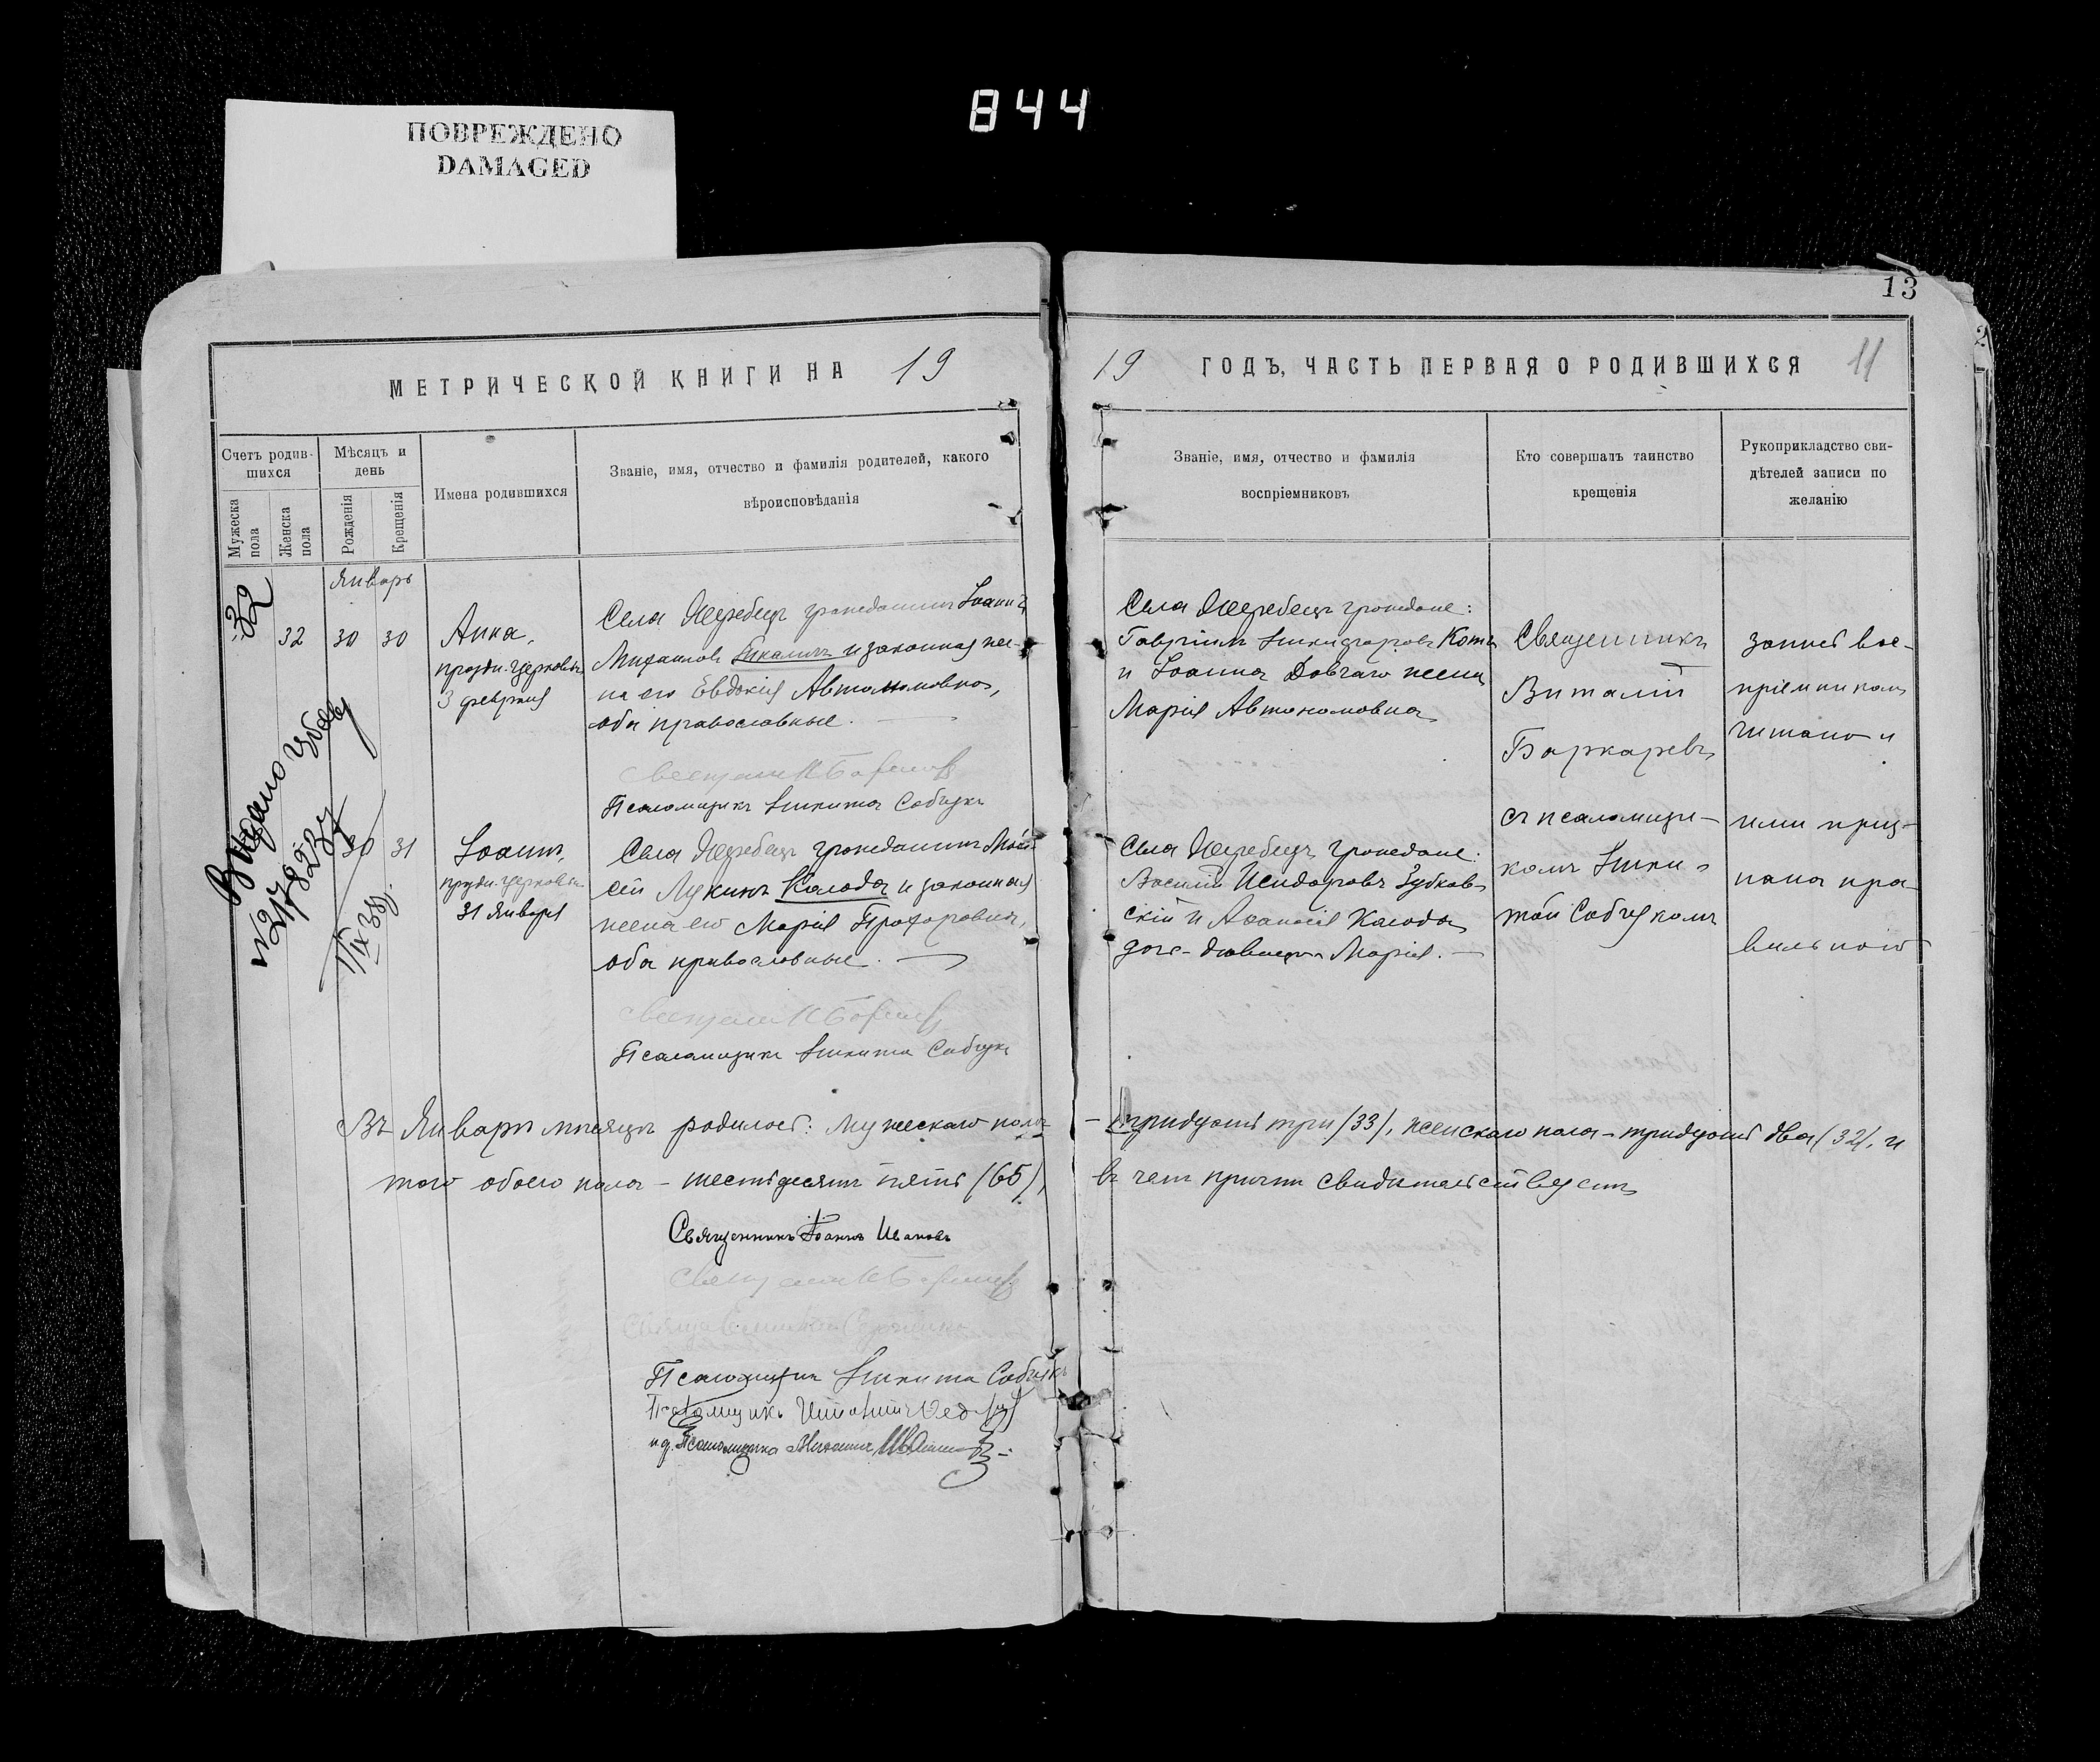 844
ПОВРЕЖДЕНО
DAMAGED
13
МЕТРИЧЕСКОЙ КНИГИ НА 19
19 ГОДЪ, ЧАСТЬ ПЕРВАЯ О РОДИВШИХСЯ 11
Счетъ родив-
шихся
Мужеска
пола
Женска
пола
Мѣсяцъ и
день
Рожденія
Крещенія
Имена родившихся
Званіе, имя, отчество и фамилія родителей, какого
вѣроисповѣданія
Званіе, имя, отчество и фамилія
воспріемниковъ
Кто совершалъ таинство
крещенія
Рукоприкладство сви-
дѣтелей записи по
желанію
Январь
32
32 30 30
Анна,
3 февраля
Села Жеребецъ гражданинъ Іоаннъ
Михаиловъ и законная же-
на его Евдокія Автономовна,
оба православные.
Псаломщикъ Никита Собчукъ
Села Жеребецъ граждане:
Гавріилъ Никифоровъ Котъ
и Іоанна Довгаго жена
Марія Автономовна
Священникъ
Виталій
съ псаломщи-
комъ Ники-
той Собчукомъ
запись вос-
пріемникамъ
читана и
ими приз-
нана пра-
вильной
Выдано
30 31
Іоаннъ,
31 Января
Села Жеребецъ гражданинъ Мои-
сей Лукинъ Колода и законная
жена его Марія Прохоровна,
оба православные.
Псаломщикъ Никита Собчукъ
Села Жеребецъ граждане:
Василій Исидоровъ Зубков-
скій и Аѳанасія Колоды
дочь-дѣвица Марія.
Въ Январѣ мѣсяцѣ родилось: мужескаго пола
- тридцать три /33/, женскаго пола - тридцать два /32/, и
того обоего пола - шестьдесятъ пять /65/,
въ чемъ причтъ свидѣтельствуетъ
Священникъ Іоаннъ Ивановъ
Псаломщикъ Никита Собчукъ
Псаломщикъ
и.д. Псаломщика